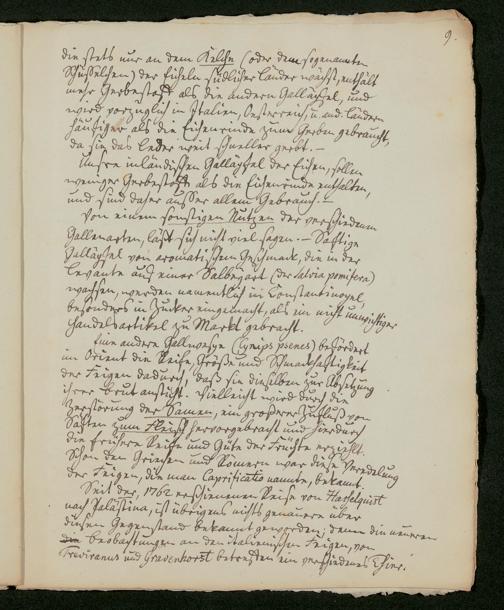 9.
die stets nur an dem Kelche (oder dem sogenannten
Schüsselchen) der Eicheln südlicher Länder wächst, enthält
mehr Gerbestoff als die andern Galläpfel, und
wird vorzüglich in Italien, Oesterreich, u. and. Ländern
häufiger als die Eichenrinde zum Gerben gebraucht,
da sie das Leder weit schneller gerbt. —
Unsre inländischen Galläpfel der Eichen, sollen
weniger Gerbestoff als die Eichenrinde enthalten,
und sind daher ausser allem Gebrauch. —
Von einem sonstigen Nutzen der verschiedenen
Gallenarten, läßt sich nicht viel sagen. — Saftige
Galläpfel von aromatischem Geschmack, die in der
Levante auf einer Salbeyart (der salvia pomifera)
wachsen, werden namentlich in Constantinopel,
besonders in Zucker eingemacht, als ein nicht unwichtiger
Handelsartikel zu Markt gebracht.
Eine andere Gallwespe (Cynips psenes) befördert
im Orient die Reife, Größe und Schmackhaftigkeit
der Feigen dadurch, daß sie dieselben zur Absetzung
ihrer Brut ansticht. Vielleicht wird durch die
Zerstörung der Samen, ein größerer Zufluß von
Säften zum Fleisch hervorgebracht und hierdurch
die frühere Reife und Güte der Früchte erzielt.
Schon den Griechen und Römern war diese Veredelung
der Feigen, die man Caprificatio nannte, bekannt.
Seit der, 1762 erschienenen Reise von Hasselquist
nach Palästina, ist übrigens nichts genaueres über
diesen Gegenstand bekannt geworden; denn die neueren
Beobachtungen an den italienischen Feigen, von
Treviranus und Gravenhorst betreffen ein verschiedenes Thier.